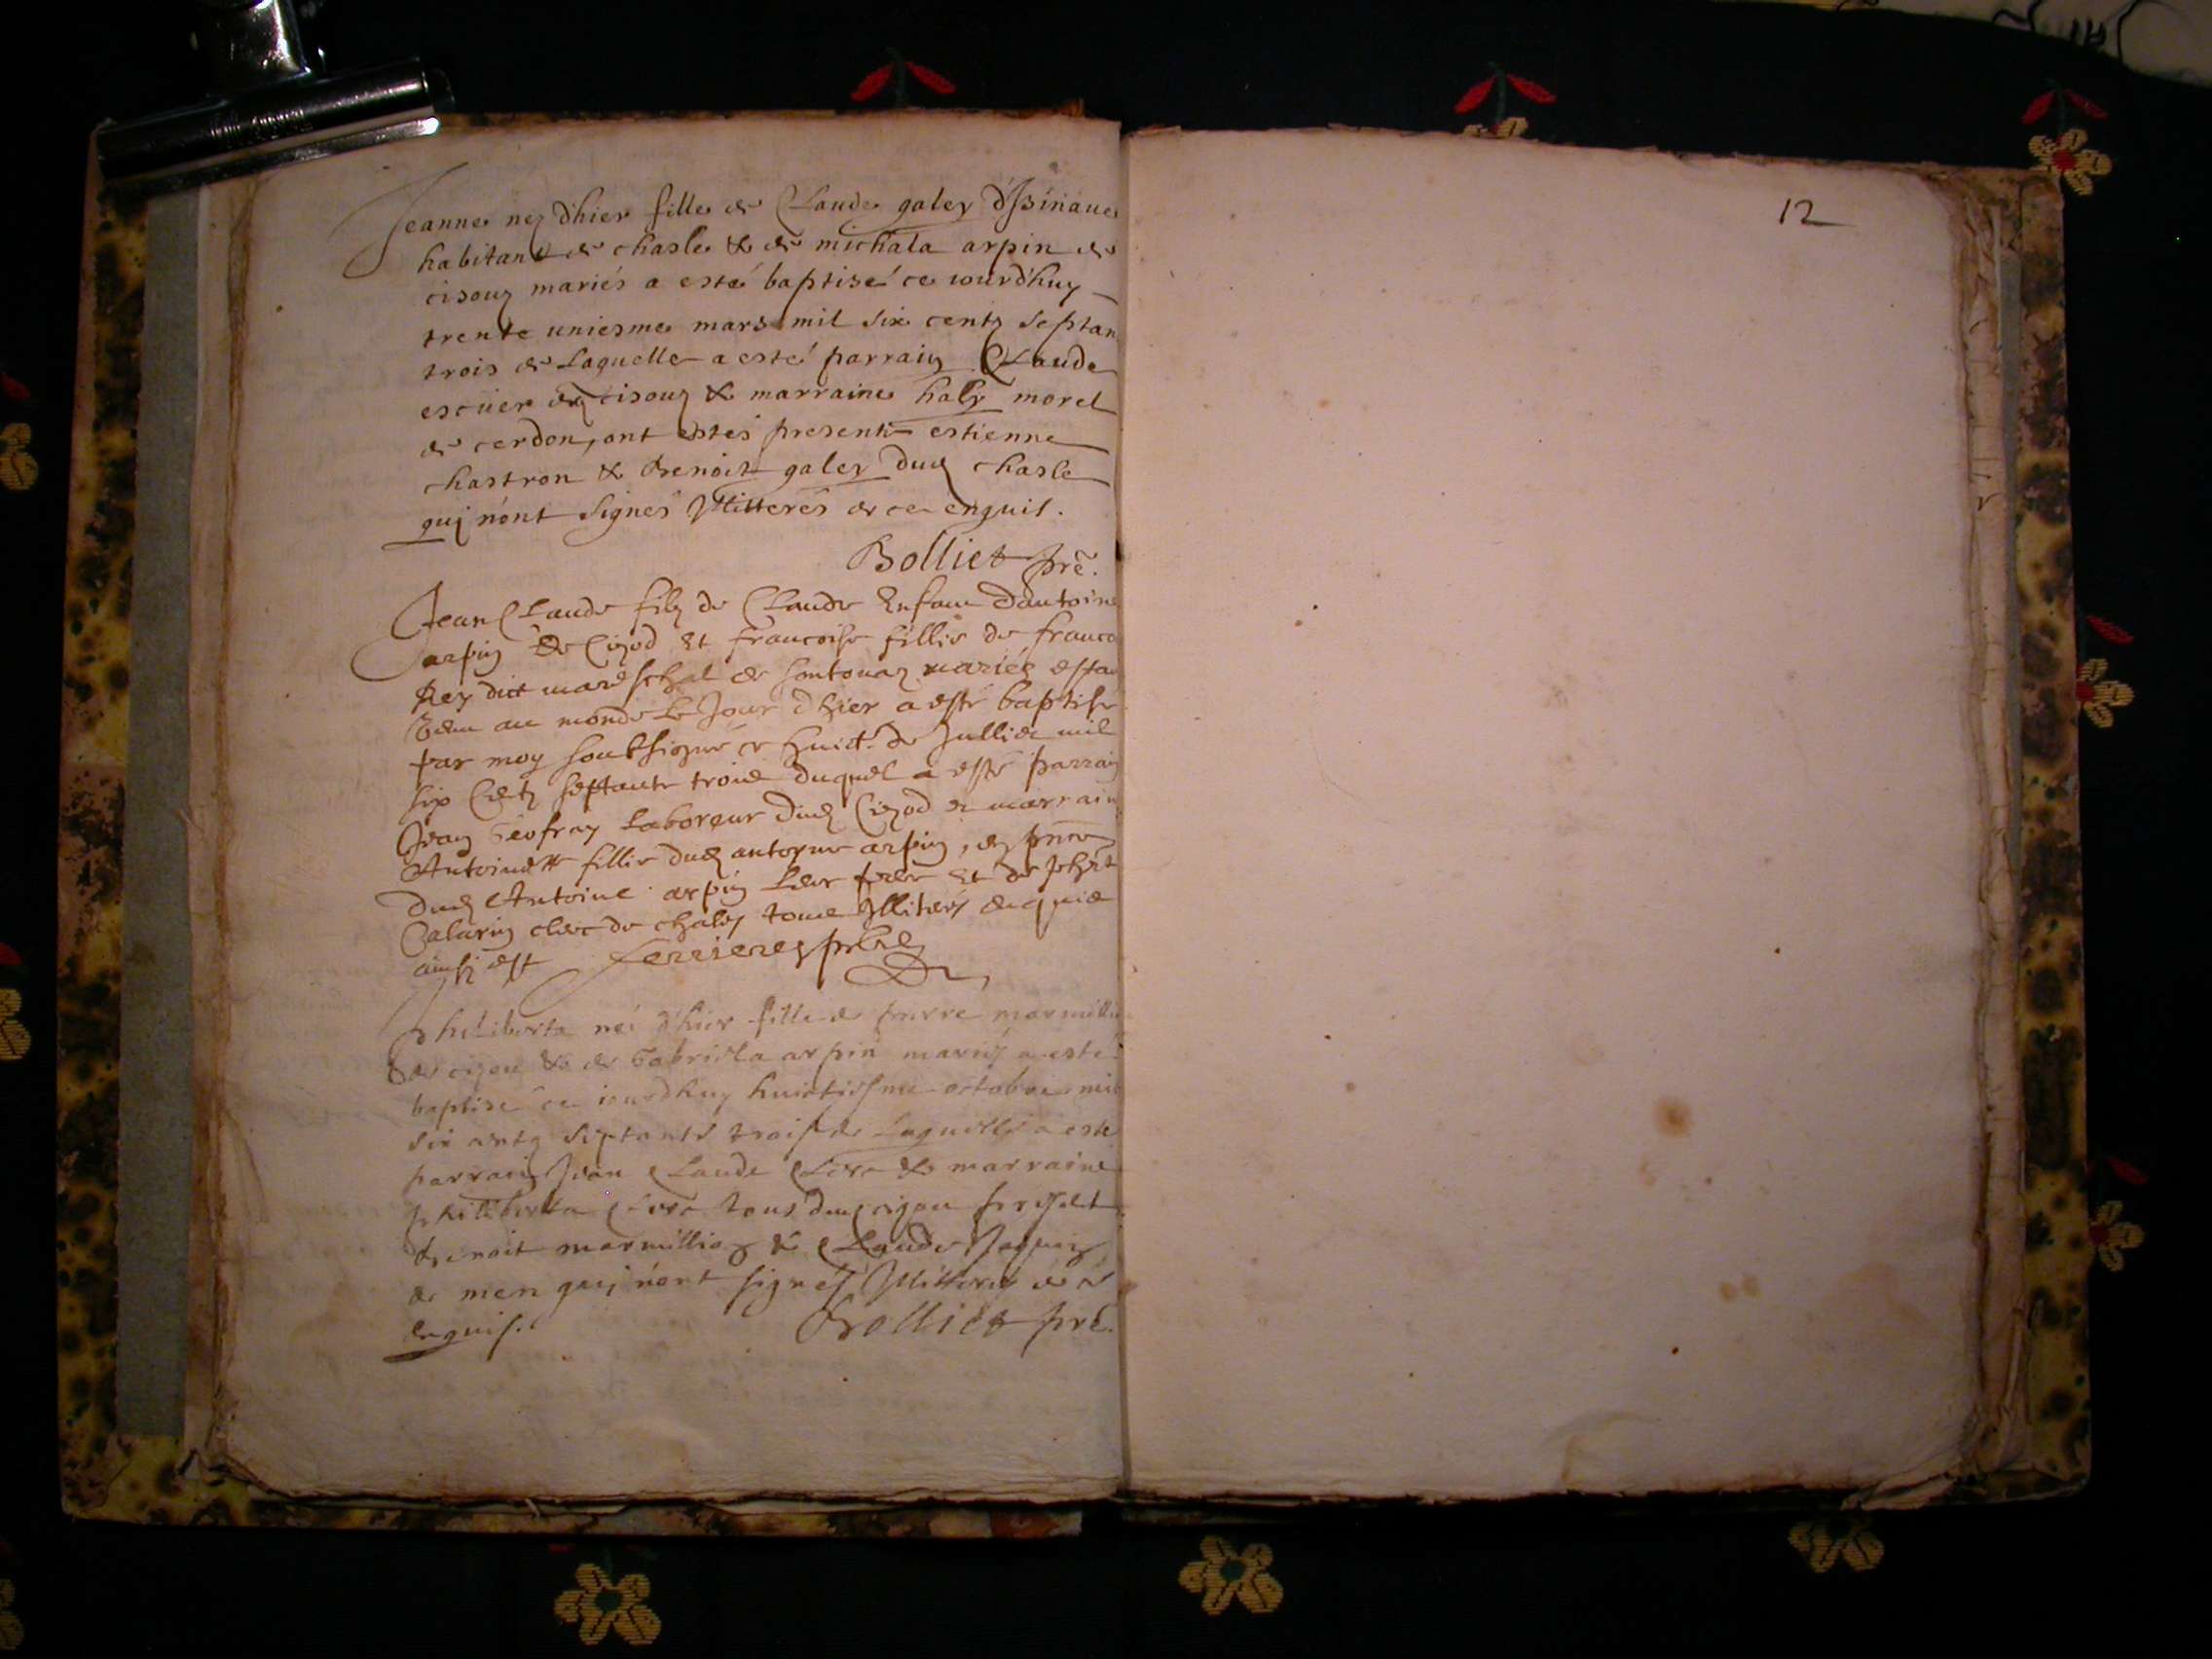 Jeanne neż d'hier fille de Claude galey d'Jsinaue
habitant de chasle & de michala arpin de
cisouz mariés a esté baptisé ce iourd'huy
trente uniesme mars mil six centz septan
trois de Laquelle a esté parrain Claude
escuier de cisouz & marraine haly morel
de cerdon, ont estés present estienne
chastron & Benoit galey dud chasle
quj n'ont signés Jllitterés de ce enquis.
Bolliet prē.
Jean Claude filz de Claude Enfant dantoine
arpin de Cizod Et francoise fillie de franco
Rey dict mareschal de mariés estan
Venu au monde le Jour d'hier a esté baptisé
par moy soubsigné ce huict de Jullie mil
six Centz septante trois duquel a esté parrain
Jean Geofray Laboreur dud Cizod et marrain
Antoinette fillie dud antoyne arpin, en pnce
dud Antoine arpin et de
clerc de chaley tous Jlliterés enquis
ainsj est ferrieres pbre
Philiberta neé d'hier fille de pierre marmillio
de cizou & de Gabriela arpin mariés a esté
baptisé ce iourdhuy huictiesme octobre mil
six centz septante trois de Laquelle a esté
parrain Jean Claude Clerc & marraine
philiberta Clerc tous dud cizou present
Benoit marmillioz & Claude Jaquin
de men quj n'ont signés Jllitterés de ce
Enquis.
Bolliet pre.
12